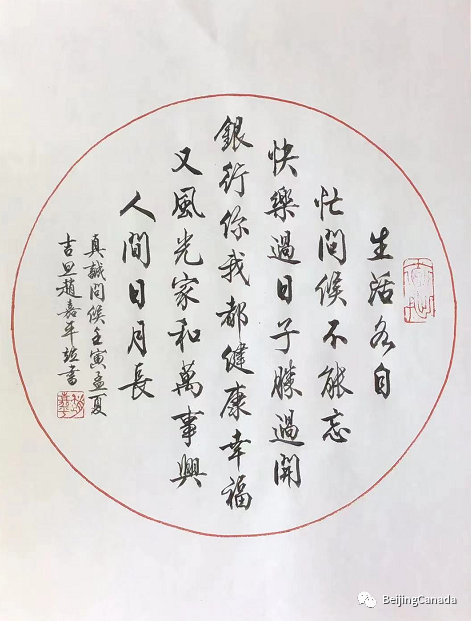 生活各自
忙問候不能忘
快樂過日子勝過開
銀行你我都健康幸福
又風光家和萬事興
人間日月長
真誠問候壬寅孟夏
吉旦趙嘉年敬書
BeijingCanada